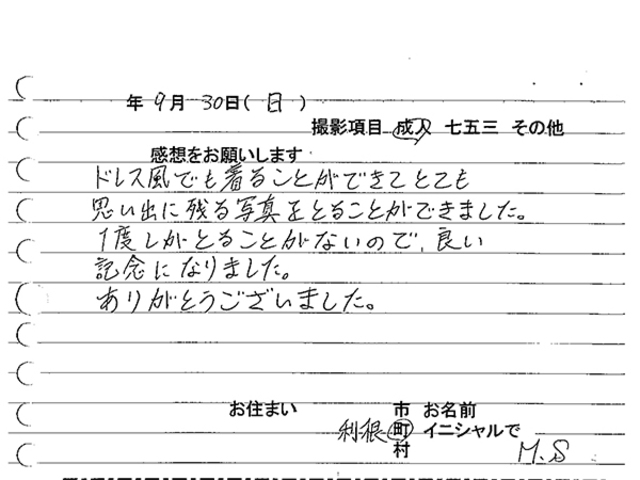 年 9月 30日(日)
撮影項目 成人 七五三 その他
感想をお願いします
ドレス風でも着ることができてとても
思い出に残る写真をとることができました。
1度しかとることがないので、良い
記念になりました。
ありがとうございました。
お住まい 市 お名前
利根 町 イニシャルで
村 M.S